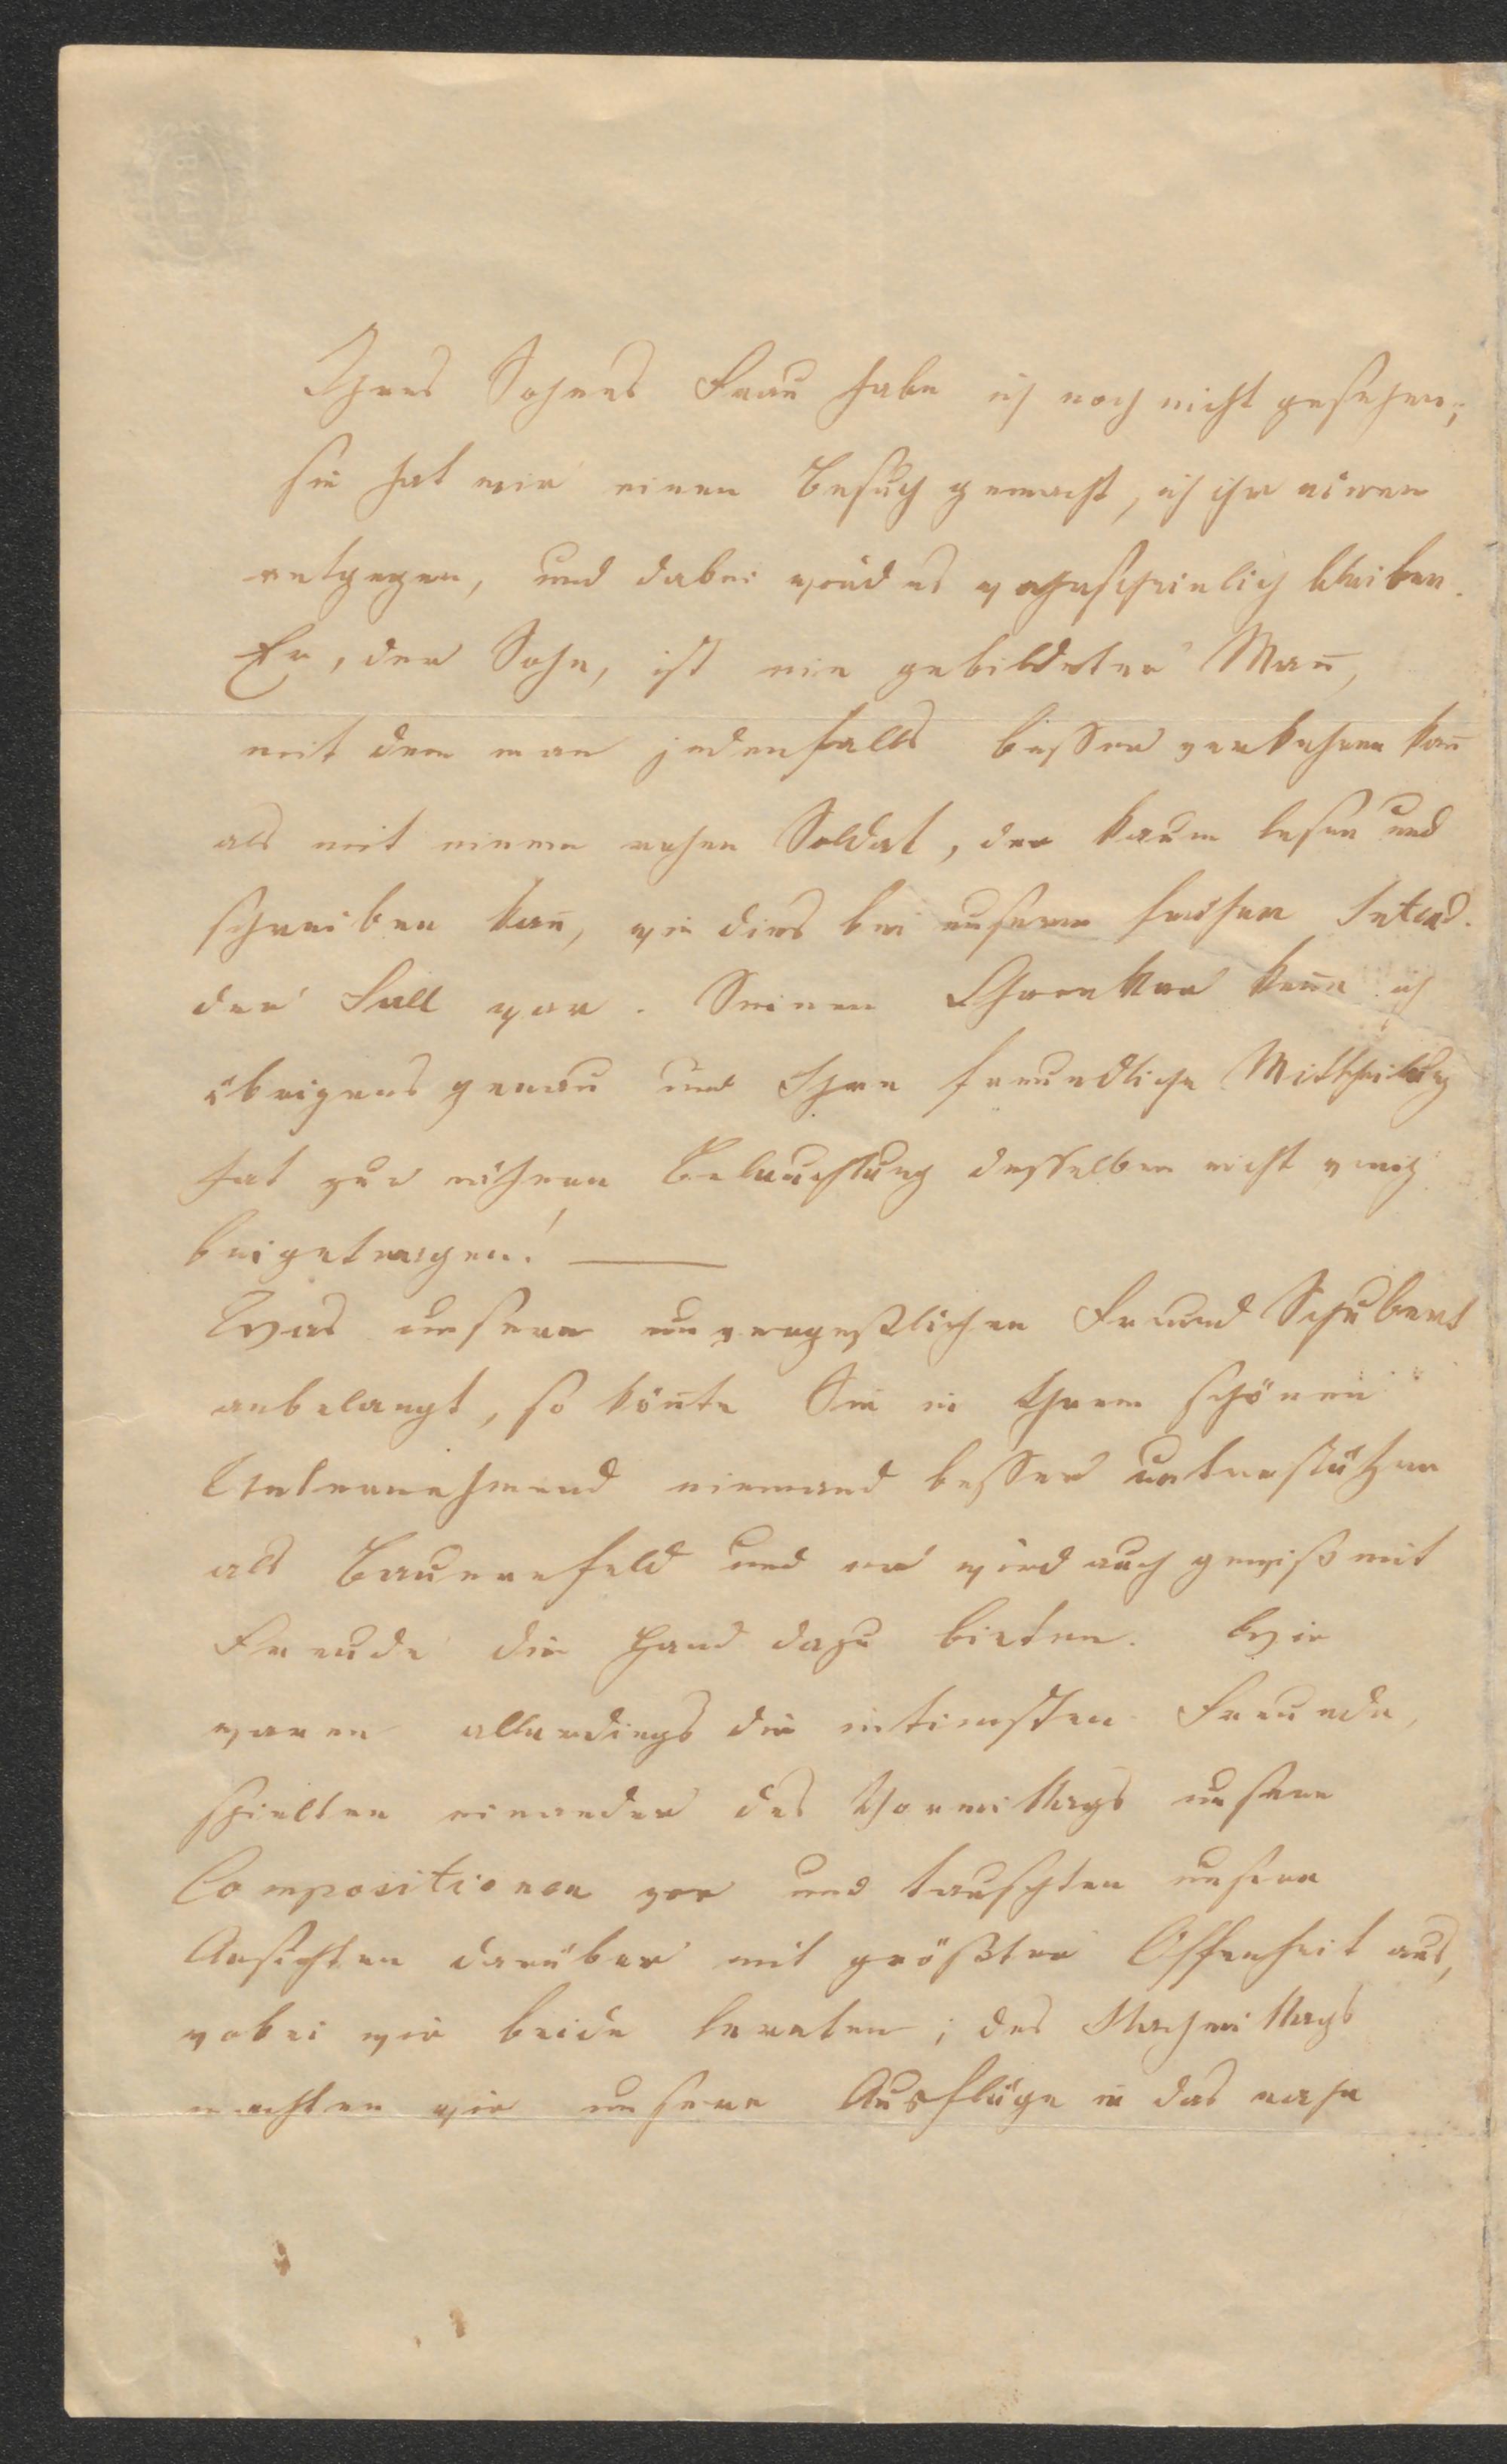 Ihres Sohnes Frau habe ich noch nicht gesehen;
sie hat mir einen Besuch gemacht, ich ihr einen
entgegen, und dabei wird es wahrscheinlich bleiben.
Er, der Sohn, ist ein gebildeter Man̅,
mit dem man jedenfalls besser verkehren kan̅
als mit einem rohen Soldat, der kaum lesen und
schreiben kan̅, wie dies bei unserem frühern Intend.
der Fall war. Seinen Charakter ken̅e ich
übrigens genau und Ihre freundliche Mittheilung
hat zur nähern Beleuchtung desselben nicht wenig
beigetragen! —
Was unsern unvergeßlichen Freund Schubert
anbelangt, so kön̅te Sie in Ihrem schönen
Unternehmend niemand besser unterstützen
als Bauernfeld und er wird auch gewiß mit
Freude die Hand dazu bieten. Wir
waren allerdings die intimsten Freunde,
spielten einander des Vormittags unsere
Compositionen vor und tauschten unsere
Ansichten darüber mit größter Offenheit aus,
wobei wir beide lernten; des Nachmittags
machten wir unsere Ausflüge in das nahe